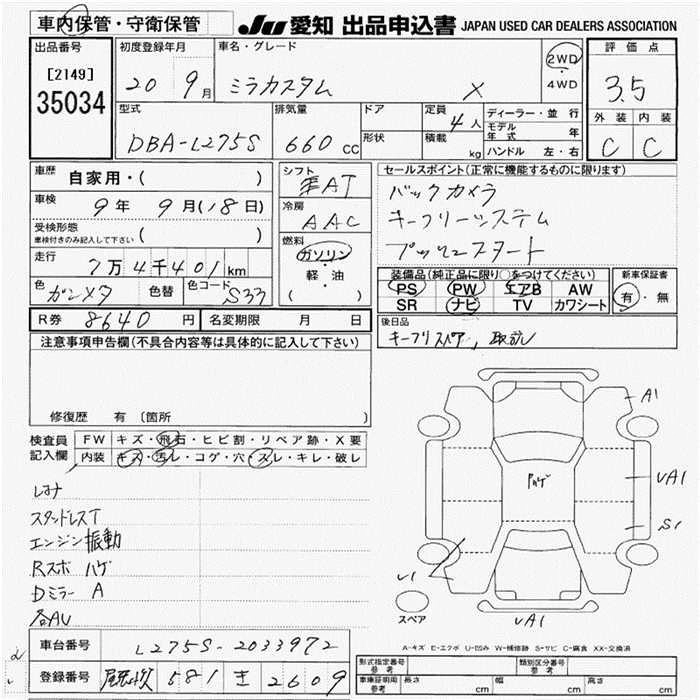 車内保管・守衛保管
JU 愛知 出品申込書 JAPAN USED CAR DEALERS ASSOCIATION
出品番号
[2149]
35034
初度登録年月
20 9月
車名・グレード
ミラカスタム X
2WD
・
4WD
評価点
3.5
外装 内装
C C
型式
DBA-L275S
排気量
660 cc
ドア
形状
定員
4人
積載
kg
ディーラー・並行
モデル年式 年
ハンドル 左・右
車歴
自家用・( )
車検
9年 9月(18日)
受検形態
車検付きのみ記入して下さい ( )
走行
7万4千401km
色 ガンメタ 色替 色コード S33
シフト
AT
冷房
AAC
燃料
ガソリン
・
軽・油
( )
セールスポイント(正常に機能するものに限ります)
バックカメラ
キーフリーシステム
プッシュスタート
装備品(純正品に限り○をつけてください)
PS PW エアB AW
SR ナビ TV カワシート
新車保証書
有・無
R券 8640 円 名変期限 月 日
後日品
キーフリスペア, 取説
注意事項申告欄(不具合内容等は具体的に記入して下さい)
修復歴 有 〔箇所
検査員記入欄
FW キズ・飛石・ヒビ割・リペア跡・X要
内装 キズ・汚レ・コゲ・穴・スレ・キレ・破レ
スタッドレスT
エンジン振動
Rスポ ハゲ
Dミラー A
各AU
A1
ハゲ
UA1
S1
U1
スペア
UA1
A-キズ E-エクボ U-凹み W-補修跡 S-サビ C-腐食 XX-交換済
車台番号 L275S-2033972
登録番号 尾張小牧 581 き 2609
型式指定番号
参考
類別区分番号
参考
車庫証明用
参考
長さ cm 幅 cm 高さ cm